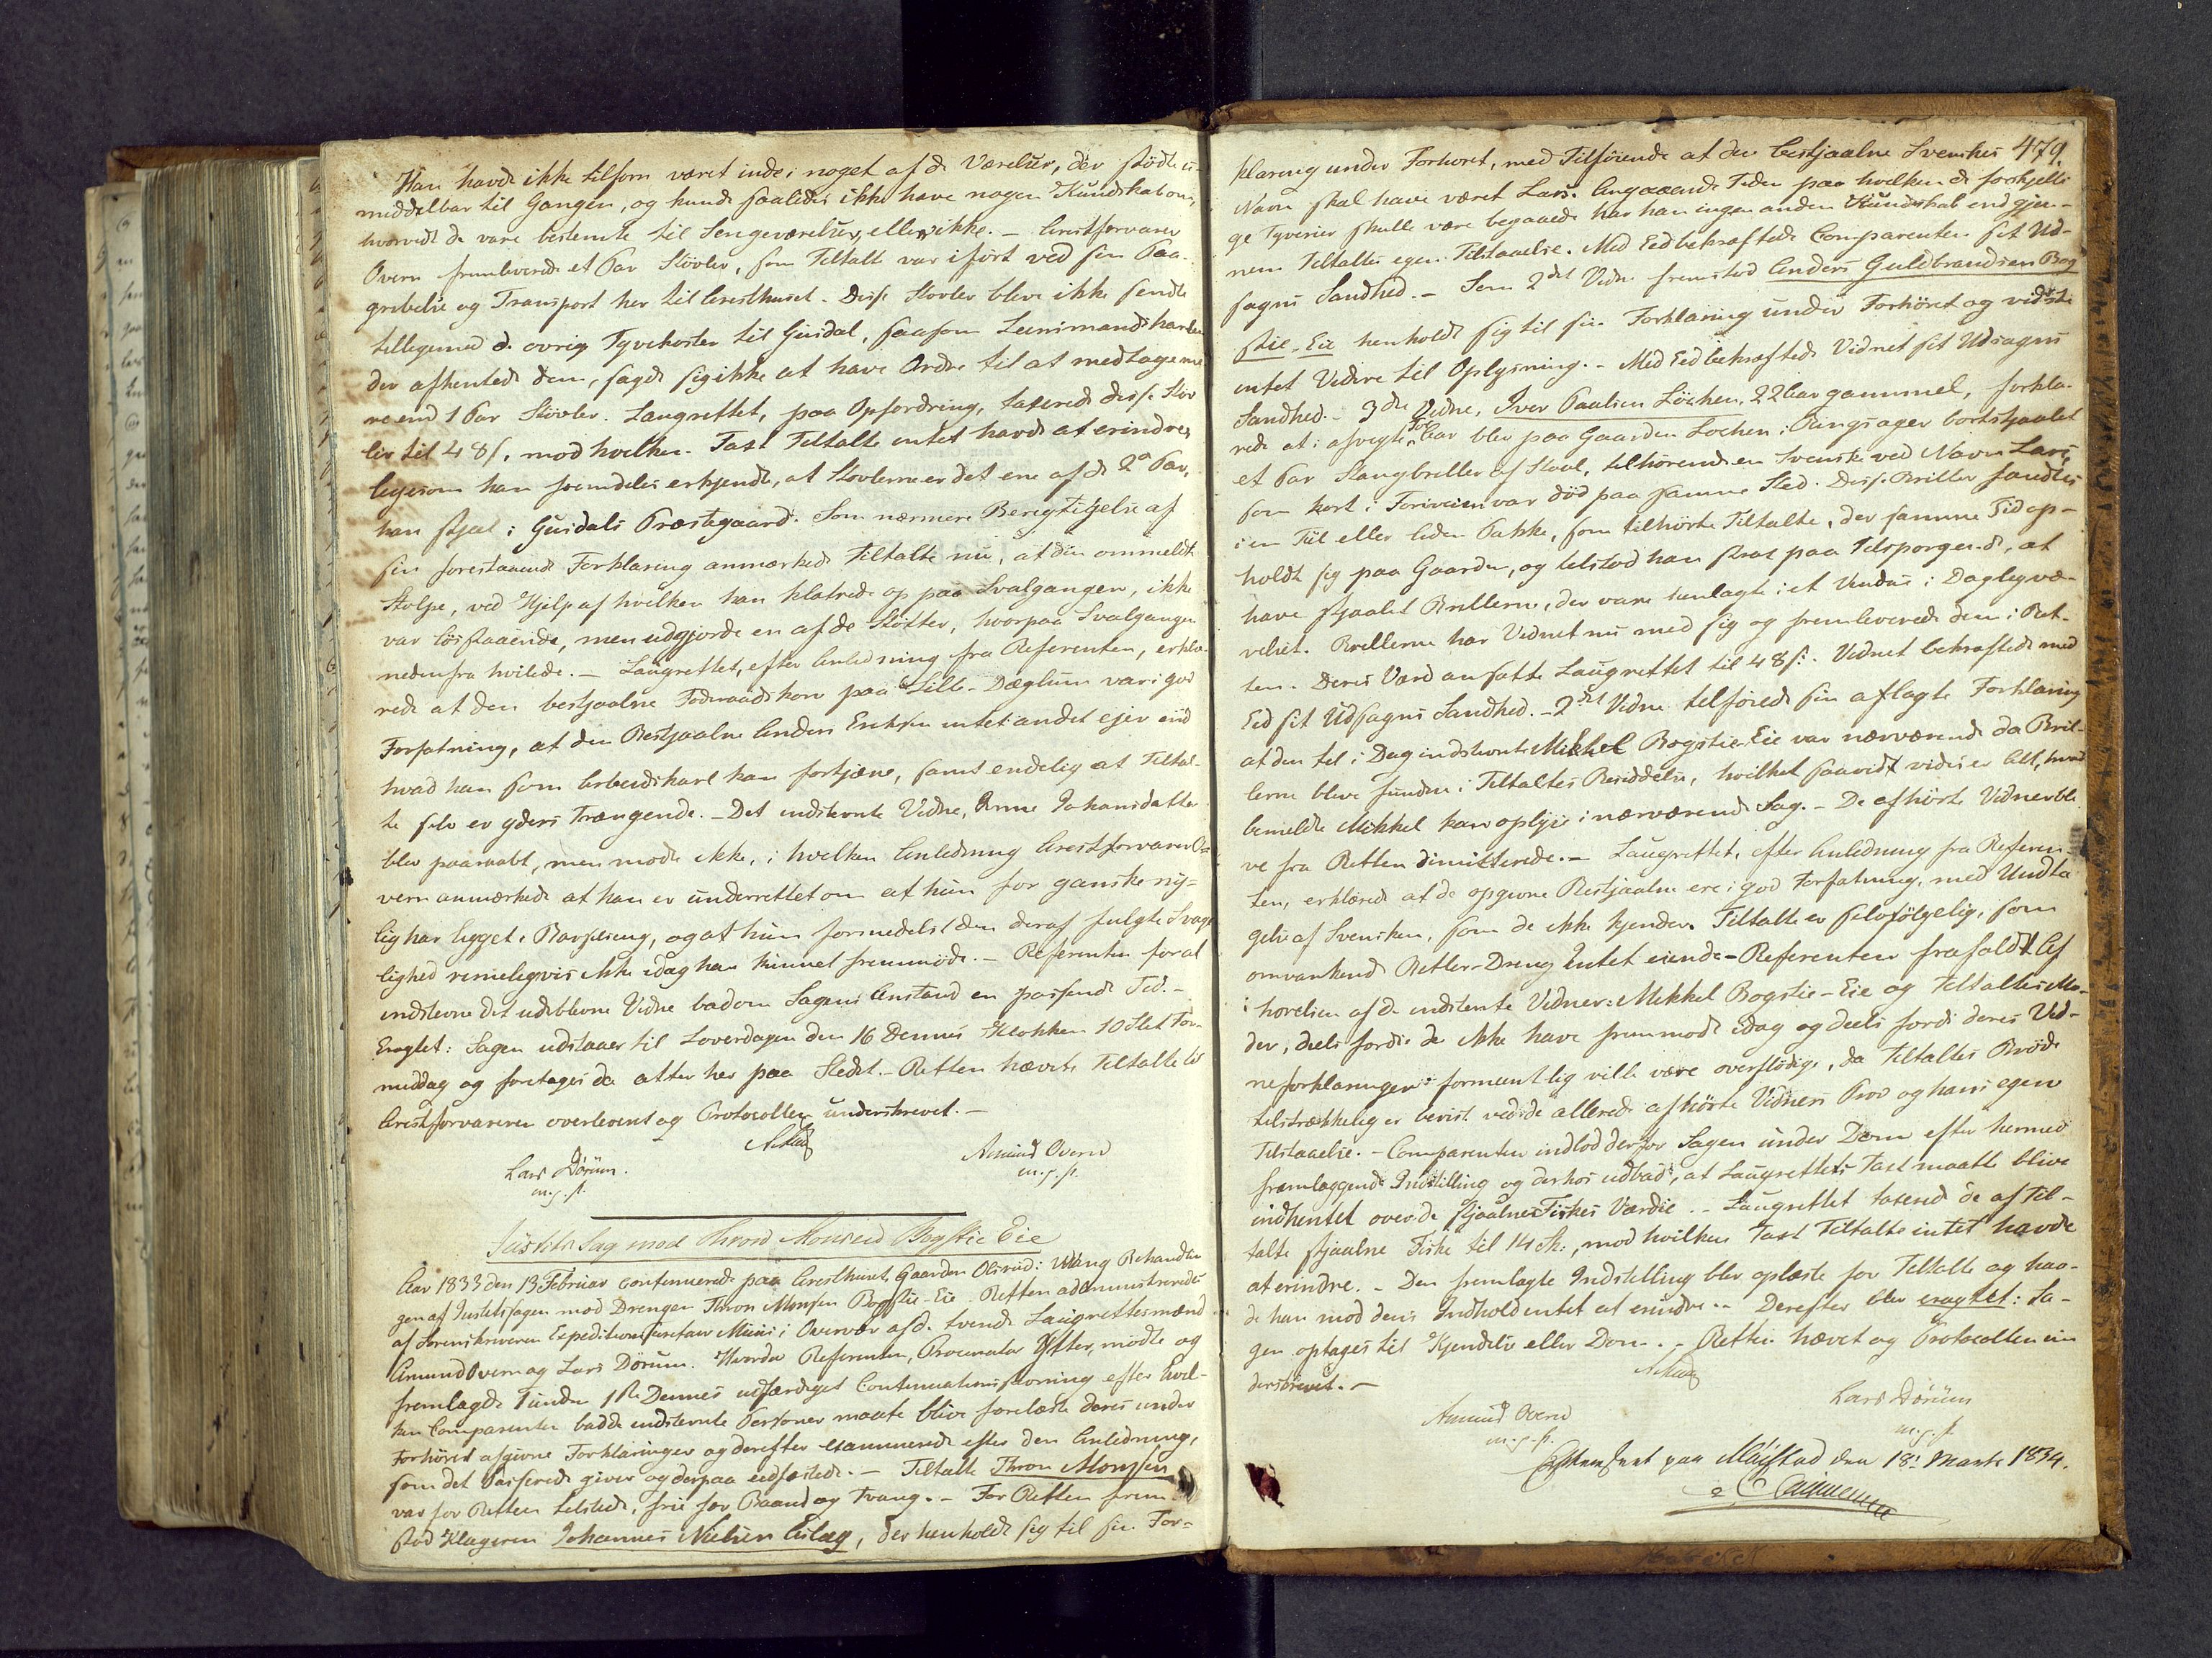 Han havde ikke tilforn været inde i noget af de Værelser, der stødte u-
middelbar til Gangen, og kunde saaledes ikke have nogen Kundskab om,
hvorvidt de vare bestemte til Sengeværelser, eller ikke. – Arestforvarer
Overn fremleverede et Par Støvler, som Tiltalte var iført ved sin Paa-
gribelse og Transport her til Aresthuset. Disse Støvler bleve ikke sendte
tilligemed de øvrige Tyvekoster til Gusdal, saasom Lensmandskarlen
der afhentede dem, sagde sig ikke at have Ordre til at medtage me-
re end 1 Par Støvler. Laugrettet, paa Opfordring, taxerede disse Støv
ler til 48 s, mod hvilken Taxt Tiltalte intet havde at erindre,
ligesom han fremdeles erkjendte, at Støvlerne er det ene af de 2de Par,
han stjal i Gusdals Præstegaard. Som nærmere Berigtigelse af
sin forestaaende Forklaring anmærkede Tiltalte nu, at den ommeldte
Stolpe, ved Hjelp af hvilken han klatrede op paa Svalgangen, ikke
var løsstaaende, men udgjorde en af de Støtter, hvorpaa Svalgangen
nedenfra hvilede. – Laugrettet, efter Anledning fra Referenten, erklæ-
rede at den bestjaalne Føderaadskone paa Lille-Dæglum var i god
Forfatning, at den Bestjaalne Anders Eriksen intet andet ejer end
hvad han som Arbeidskarl kan fortjene, samt endelig at Tiltal-
te selv er yderst Trængende. – Det indstevnte Vidne, Anne Johansdatter
blev paaraabt, men mødte ikke, i hvilken Anledning Arestforvarer O-
vern anmærkede at han er underrettet om at hun for ganske ny-
lig har ligget i Barselseng, og at hun formedelst den deraf fulgte Svage
lighed rimeligvis ikke idag har kunnet fremmøde. – Referenten for at
indstevne det udeblevne Vidne bad om Sagens Anstand en passende Tid. –
Eragtet: Sagen udstaaer til Løverdagen den 16 Dennes Klokken 10 Slet For-
middag og foretages da atter her paa Stedet. – Retten hævet, Tiltalte til
Arestforvareren overleveret og Protocollen underskrevet. –
Lars Dørum.
m.f.p.
Amund Overn
m.f.p.
Justits Sag mod Thron Monsen Bogstie Eie
Aar 1833 den 13 Februar continuerede paa Aresthuset, Gaarden Olsrud i Vang Behandlin
gen af Justitssagen mod Drengen Thron Monsen Bogstie-Eie. Retten administreredes
af Sorenskriveren Expeditionssecretair Munis i Overvær af de tvende Laugrettesmænd
Amund Overn og Lars Dørum. Hvorda Referenten, Procurator Yttter, mødte og
fremlagde Tunden 1ste Dennes udfærdiget Continuationsstevning efter hvil-
ken Comparenten badde indstevnte Personer maate blive forelæste deres under
Forhøret afgivne Forklaringer og derefter examinerede efter den Anledning,
som det Passerede giver og derpaa eedfæstede. – Tiltalte Thron Monsen
var for Retten tilstede, frie for Baand og Tvang. – For Retten frem-
stod Klageren Johannes Nielsen Aslag, der henholdt sig til sin For-
479.
klaring under Forhøret, med Tilføiende at den bestjaalne Svenskes
Navn skal have været Lars. Angaaende Tiden paa hvilken de forskjelli
ge Tyverier skulle være begaaede har han ingen anden Kundskab end gjen-
nem Tiltaltes egen Tilstaaelse. Med Eed bekræftede Comparenten sit Ud-
sagns Sandhed. – Som 2det Vidne fremstod Anders Guldbrandsen Bog
stie-Eie henholdt sig til sin Forklaring under Forhøret og vidste
intet Videre til Oplysning. – Med Eed bekræftede Vidnet sit Udsagns
Sandhed. – 3die Vidne, Iver Paulsen Løken, 22 Aar gammel, forkla-
rede at i afvigte For Aar blev paa Gaarden Løken i Ringsager bortstjaalet
et Par Stangbriller af Staal, tilhørende en Svenske ved Navn Lars,
som kort i Forveien var død paa samme Sted. Disse Briller fandtes
i en Tiil eller liden Pakke, som tilhørte Tiltalte, der samme Tid op-
holdt sig paa Gaarden, og tilstod han strax paa Tilspørgende, at
have stjaalet Brillerne, der vare henlagte i et Vindue i Dagligvæ-
relset. Brillerne har Vidnet nu med sig og fremleverede dem i Ret-
ten. Deres Værd ansatte Laugrettet til 48 s. Vidnet bekræftede med
Eed sit Udsagns Sandhed. – 2det Vidne tilføiede sin aflagte Forklaring
at den til i Dag indstevnte Mikkel Bogstie-Eie var nærværende da Bril-
lerne bleve funden i Tiltaltes Besiddelse, hvilket saavidt vides er Alt, hvad
bemeldte Mikkel kan oplyse i nærværende Sag. – De afhørte Vidner ble
ve fra Retten dimitterede. – Laugrettet, efter Anledning fra Referen-
ten, erklærede at de opgivne Bestjaalne ere i god Forfatning, med Undta
gelse af Svensken, som de ikke kjender. Tiltalte er selvfølgelig, som
omvankende Betler-Dreng Intet eiende – Referenten frafaldt Af
hørelsen af de indstevnte Vidner: Mikkel Bogstie-Eie og Tiltaltes Mo-
der, deels fordi de ikke have fremmødt idag og deels fordi deres Vid-
neforklaringer formeentlig ville være overflødige, da Tiltaltes Brøde
tilstrækkelig er bevist ved de allerede afhørte Vidners Prov og hans egen
Tilstaaelse. – Comparenten indlod derfor Sagen under Dom efter hermed
fremlæggende Indstilling og derhos udbad, at Laugrettets Taxt maatte blive
indhentet over de stjaalne Fiskes Værdie. – Laugrettet taxered de af Til-
talte stjaalne Fiske til 14 sk:, mod hvilken Taxt Tiltalte intet havde
at erindre. – Den fremlagte Indstilling blev oplæste for Tiltalte og hav-
de han mod dens Indhold intet at erindre. – Derefter blev eragtet: Sa-
gen optages til Kjendelse eller Dom. – Retten hævet og Protocollen un
derskrevet. –
Amund Overn
m.f.p.
Lars Dørum
m.f.p.
paa Maistad den 18. Marts 1834.